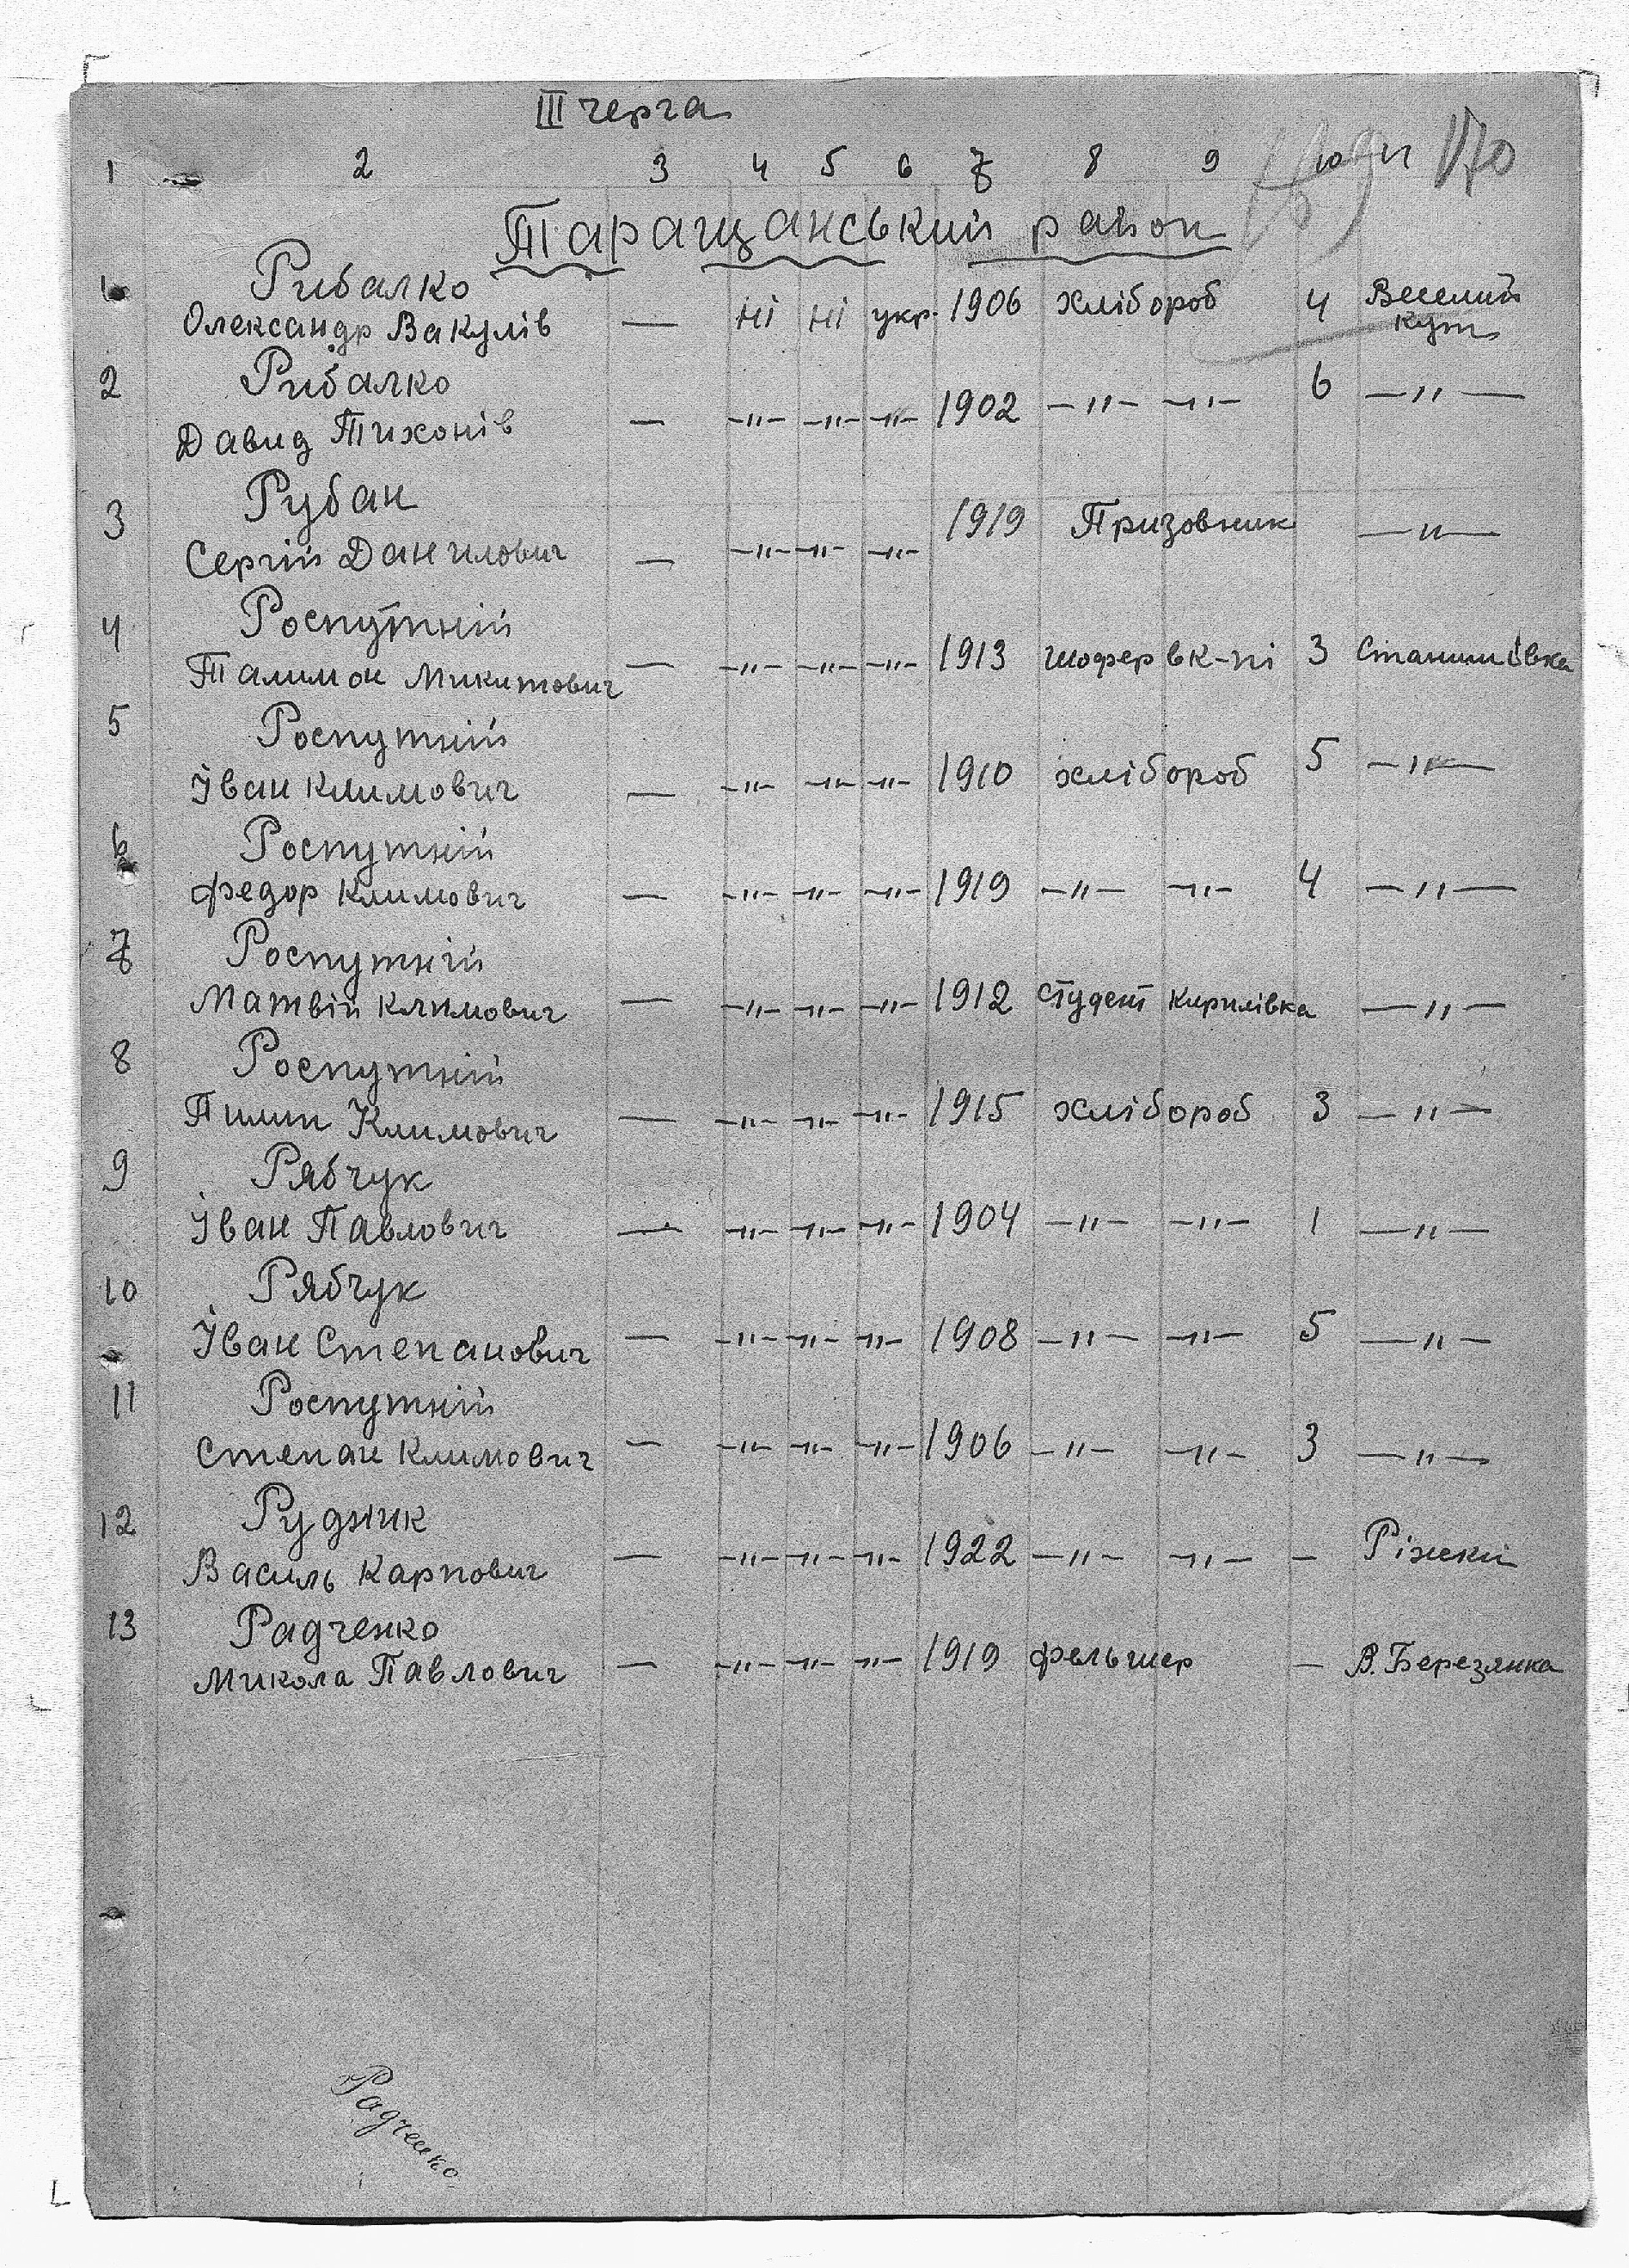 III черга
1 2 3 4 5 6 7 8 9 10 11 170
Таращанський район
1 Рибалко
Олександр Вакулів — ні ні укр. 1906 хлібороб 4 Веселий Кут
2 Рибалко
Давид Тихонів — —"— —"— —"— 1902 —"— —"— 6 —"—
3 Рубан
Сергій Данилович — —"— —"— —"— 1919 Призовник —"—
4 Роспутній
Талимон Микитович — —"— —"— —"— 1913 шофер в к-пі 3 Станишівка
5 Роспутній
Іван Климович — —"— —"— —"— 1910 хлібороб 5 —"—
6 Роспутній
Федор Климович — —"— —"— —"— 1919 —"— —"— 4 —"—
7 Роспутній
Матвій Климович — —"— —"— —"— 1912 студент Кирилівка —"—
8 Роспутній
Пилип Климович — —"— —"— —"— 1915 хлібороб 3 —"—
9 Рябчук
Іван Павлович — —"— —"— —"— 1904 —"— —"— 1 —"—
10 Рябчук
Іван Степанович — —"— —"— —"— 1908 —"— —"— 5 —"—
11 Роспутній
Степан Климович — —"— —"— —"— 1906 —"— —"— 3 —"—
12 Рудник
Василь Карпович — —"— —"— —"— 1922 —"— —"— — Ріжки
13 Радченко
Микола Павлович — —"— —"— —"— 1919 фельшер — В. Березянка
Радченко